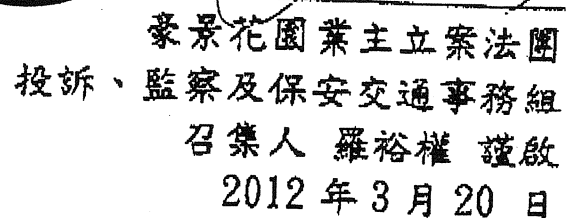 豪景花園業主立案法團
投訴、監察及保安交通事務組
召集人 羅裕權 謹啟
2012 年 3 月 20 日